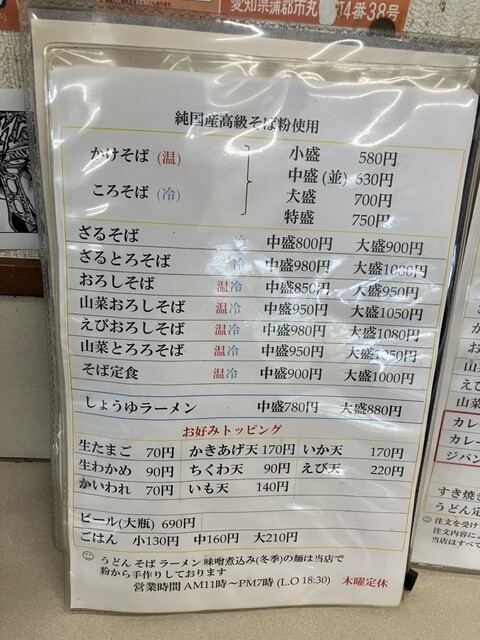 愛知県蒲郡市丸
町4番38号
純国産高級そば粉使用
かけそば (温)
ころそば (冷)
小盛 580円
中盛 (並) 630円
大盛 700円
特盛 750円
ざるそば 冷 中盛800円 大盛900円
ざるとろそば 冷 中盛980円 大盛1080円
おろしそば 温冷 中盛850円 大盛950円
山菜おろしそば 温冷 中盛950円 大盛1050円
えびおろしそば 温冷 中盛980円 大盛1080円
山菜とろろそば 温冷 中盛950円 大盛1050円
そば定食 温冷 中盛900円 大盛1000円
しょうゆラーメン 中盛780円 大盛880円
お好みトッピング
生たまご 70円 かきあげ天 170円 いか天 170円
生わかめ 90円 ちくわ天 90円 えび天 220円
かいわれ 70円 いも天 140円
ビール(大瓶) 690円
ごはん 小130円 中160円 大210円
うどん そば ラーメン 味噌煮込み(冬季)の麺は当店で
粉から手作りしております
営業時間 AM11時～PM7時 (L.O 18:30) 木曜定休
カレ
カレー
ジパン
すき焼き
うどん定
注文を受け
注文内容に
当店はすべ